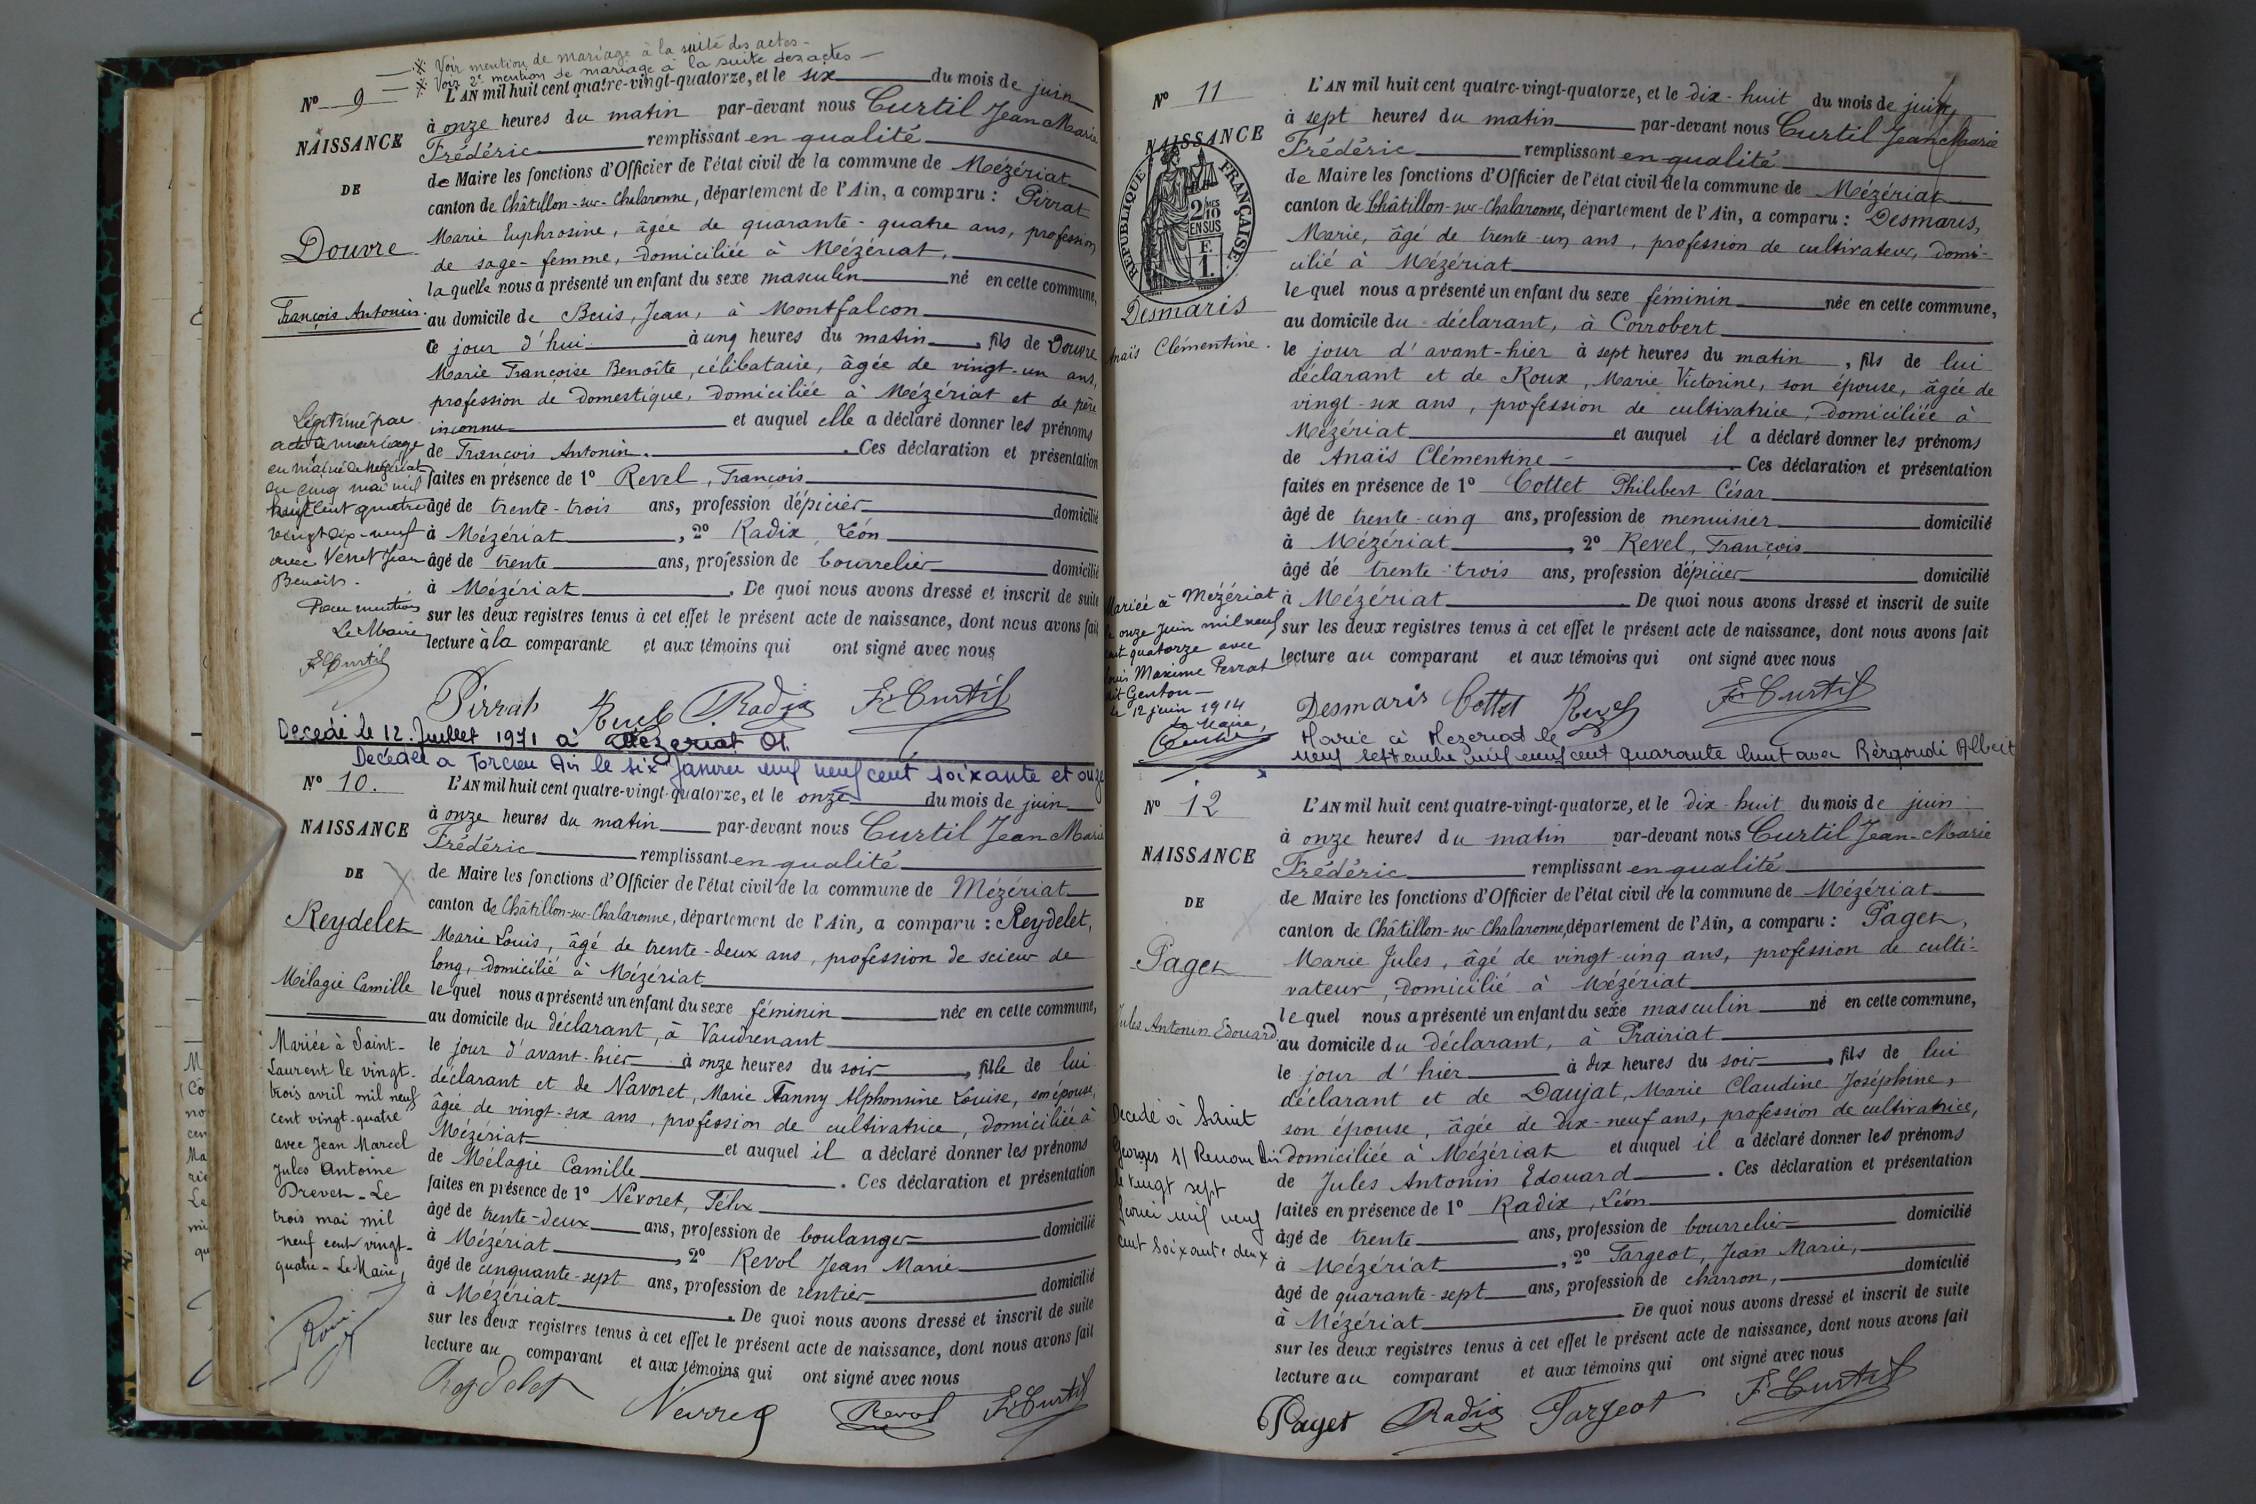 ※ Voir mention de mariage à la suite des actes -
※ Voir 2e mention de mariage à la suite des actes -
No 9
NAISSANCE
DE
Douvre
François Antonin.
L'AN mil huit cent quatre-vingt-quatorze, et le six du mois de juin
à onze heures du matin par-devant nous Curtil Jean Marie
Frédéric remplissant en qualité
de Maire les fonctions d'Officier de l'état civil de la commune de Mézériat
canton de Châtillon-sur-Chalaronne, département de l'Ain, a comparu : Pirrat
Marie Euphrosine, âgée de quarante-quatre ans, profession
de sage-femme, domiciliée à Mézériat,
laquelle nous a présenté un enfant du sexe masculin né en cette commune,
au domicile de Beris, Jean, à Montfalcon
ce jour d'hui à cinq heures du matin, fils de Douvre
Marie Françoise Benoîte, célibataire, âgée de vingt-un ans,
profession de domestique, domiciliée à Mézériat et de père
inconnu et auquel elle a déclaré donner les prénoms
de François Antonin. Ces déclaration et présentation
faites en présence de 1o Revel, François
âgé de trente-trois ans, profession d'épicier domicilié
à Mézériat, 2o Radix, Léon
âgé de trente ans, profession de bourrelier domicilié
à Mézériat. De quoi nous avons dressé et inscrit de suite
sur les deux registres tenus à cet effet le présent acte de naissance, dont nous avons fait
lecture à la comparante et aux témoins qui ont signé avec nous
Légitimé par
acte de mariage
en mairie de Mézériat
du cinq mai mil
huit cent quatre
vingt dix-neuf
avec Verret Jean
Benoît.
Pour mention
Le Maire
F. Curtil
Pirrat Revel Radix F. Curtil
Décédé le 12 Juillet 1971 à Mézériat 01
Décédée à Torcieu Ain le six Janvier mil neuf cent soixante et onze
No 10.
NAISSANCE
DE
Reydelet
Mélagie Camille
L'AN mil huit cent quatre-vingt-quatorze, et le onze du mois de juin
à onze heures du matin par-devant nous Curtil Jean Marie
Frédéric remplissant en qualité
de Maire les fonctions d'Officier de l'état civil de la commune de Mézériat
canton de Châtillon-sur-Chalaronne, département de l'Ain, a comparu : Reydelet,
Marie Louis, âgé de trente-deux ans, profession de scieur de
long, domicilié à Mézériat
lequel nous a présenté un enfant du sexe féminin née en cette commune,
au domicile du déclarant, à Vaudrenant
le jour d'avant-hier à onze heures du soir, fille de lui
déclarant et de Navoret, Marie Fanny Alphonsine Louise, son épouse,
âgée de vingt-six ans, profession de cultivatrice, domiciliée à
Mézériat et auquel il a déclaré donner les prénoms
de Mélagie Camille. Ces déclaration et présentation
faites en présence de 1o Névoret, Félix
âgé de trente-deux ans, profession de boulanger domicilié
à Mézériat, 2o Revol Jean Marie
âgé de cinquante-sept ans, profession de rentier domicilié
à Mézériat. De quoi nous avons dressé et inscrit de suite
sur les deux registres tenus à cet effet le présent acte de naissance, dont nous avons fait
lecture au comparant et aux témoins qui ont signé avec nous
Mariée à Saint-
Laurent le vingt-
trois avril mil neuf
cent vingt-quatre
avec Jean Marcel
Jules Antoine
Drevet - Le
trois mai mil
neuf cent vingt-
quatre - Le Maire,
Reydelet Revol F. Curtil
No 11
NAISSANCE
RÉPUBLIQUE FRANÇAISE
2 MES
10
EN SUS
F.
1.
Desmaris
Anaïs Clémentine.
L'AN mil huit cent quatre-vingt-quatorze, et le dix-huit du mois de juin,
à sept heures du matin par-devant nous Curtil Jean Marie
Frédéric remplissant en qualité
de Maire les fonctions d'Officier de l'état civil de la commune de Mézériat
canton de Châtillon-sur-Chalaronne, département de l'Ain, a comparu : Desmaris,
Marie, âgé de trente-un ans, profession de cultivateur, domi-
cilié à Mézériat
lequel nous a présenté un enfant du sexe féminin née en cette commune,
au domicile du déclarant, à Corrobert
le jour d'avant-hier à sept heures du matin, fils de lui
déclarant et de Roux, Marie Victorine, son épouse, âgée de
vingt-six ans, profession de cultivatrice, domiciliée à
Mézériat et auquel il a déclaré donner les prénoms
de Anaïs Clémentine - Ces déclaration et présentation
faites en présence de 1o Cottet Philibert César
âgé de trente-cinq ans, profession de menuisier domicilié
à Mézériat, 2o Revel, François
âgé de trente-trois ans, profession d'épicier domicilié
à Mézériat. De quoi nous avons dressé et inscrit de suite
sur les deux registres tenus à cet effet le présent acte de naissance, dont nous avons fait
lecture au comparant et aux témoins qui ont signé avec nous
Mariée à Mézériat
le onze juin mil neuf
cent quatorze avec
Louis Maxime Perrat
dit Genton -
le 12 juin 1914
Le Maire,
Desmaris Cottet Revel F. Curtil
Marié à Mézériat le
neuf septembre mil neuf cent quarante huit avec Albert
No 12
NAISSANCE
DE
Paget
Jules Antonin Edouard
L'AN mil huit cent quatre-vingt-quatorze, et le dix-huit du mois de juin
à onze heures du matin par-devant nous Curtil Jean-Marie
Frédéric remplissant en qualité
de Maire les fonctions d'Officier de l'état civil de la commune de Mézériat
canton de Châtillon-sur-Chalaronne, département de l'Ain, a comparu : Paget,
Marie Jules, âgé de vingt-cinq ans, profession de culti-
vateur, domicilié à Mézériat
lequel nous a présenté un enfant du sexe masculin né en cette commune,
au domicile du déclarant, à Prairiat
le jour d'hier à dix heures du soir, fils de lui
déclarant et de Daujat, Marie Claudine Joséphine,
son épouse, âgée de dix-neuf ans, profession de cultivatrice,
domiciliée à Mézériat et auquel il a déclaré donner les prénoms
de Jules Antonin Edouard. Ces déclaration et présentation
faites en présence de 1o Radix, Léon
âgé de trente ans, profession de bourrelier domicilié
à Mézériat, 2o Fargeot, Jean Marie,
âgé de quarante-sept ans, profession de charron, domicilié
à Mézériat. De quoi nous avons dressé et inscrit de suite
sur les deux registres tenus à cet effet le présent acte de naissance, dont nous avons fait
lecture au comparant et aux témoins qui ont signé avec nous
Décédé à Saint
Georges s/ Renom Ain
le vingt sept
février mil neuf
cent soixante deux
Paget Radix Fargeot F. Curtil